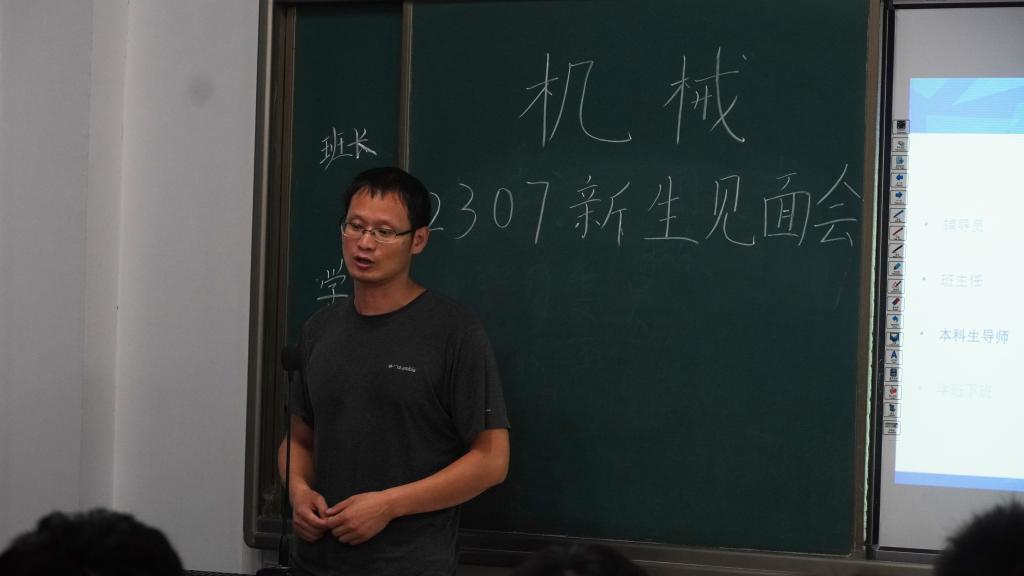 机 械
2307新生见面会
班长
学
Columbia
辅导员
班主任
本科生导师
学班下班